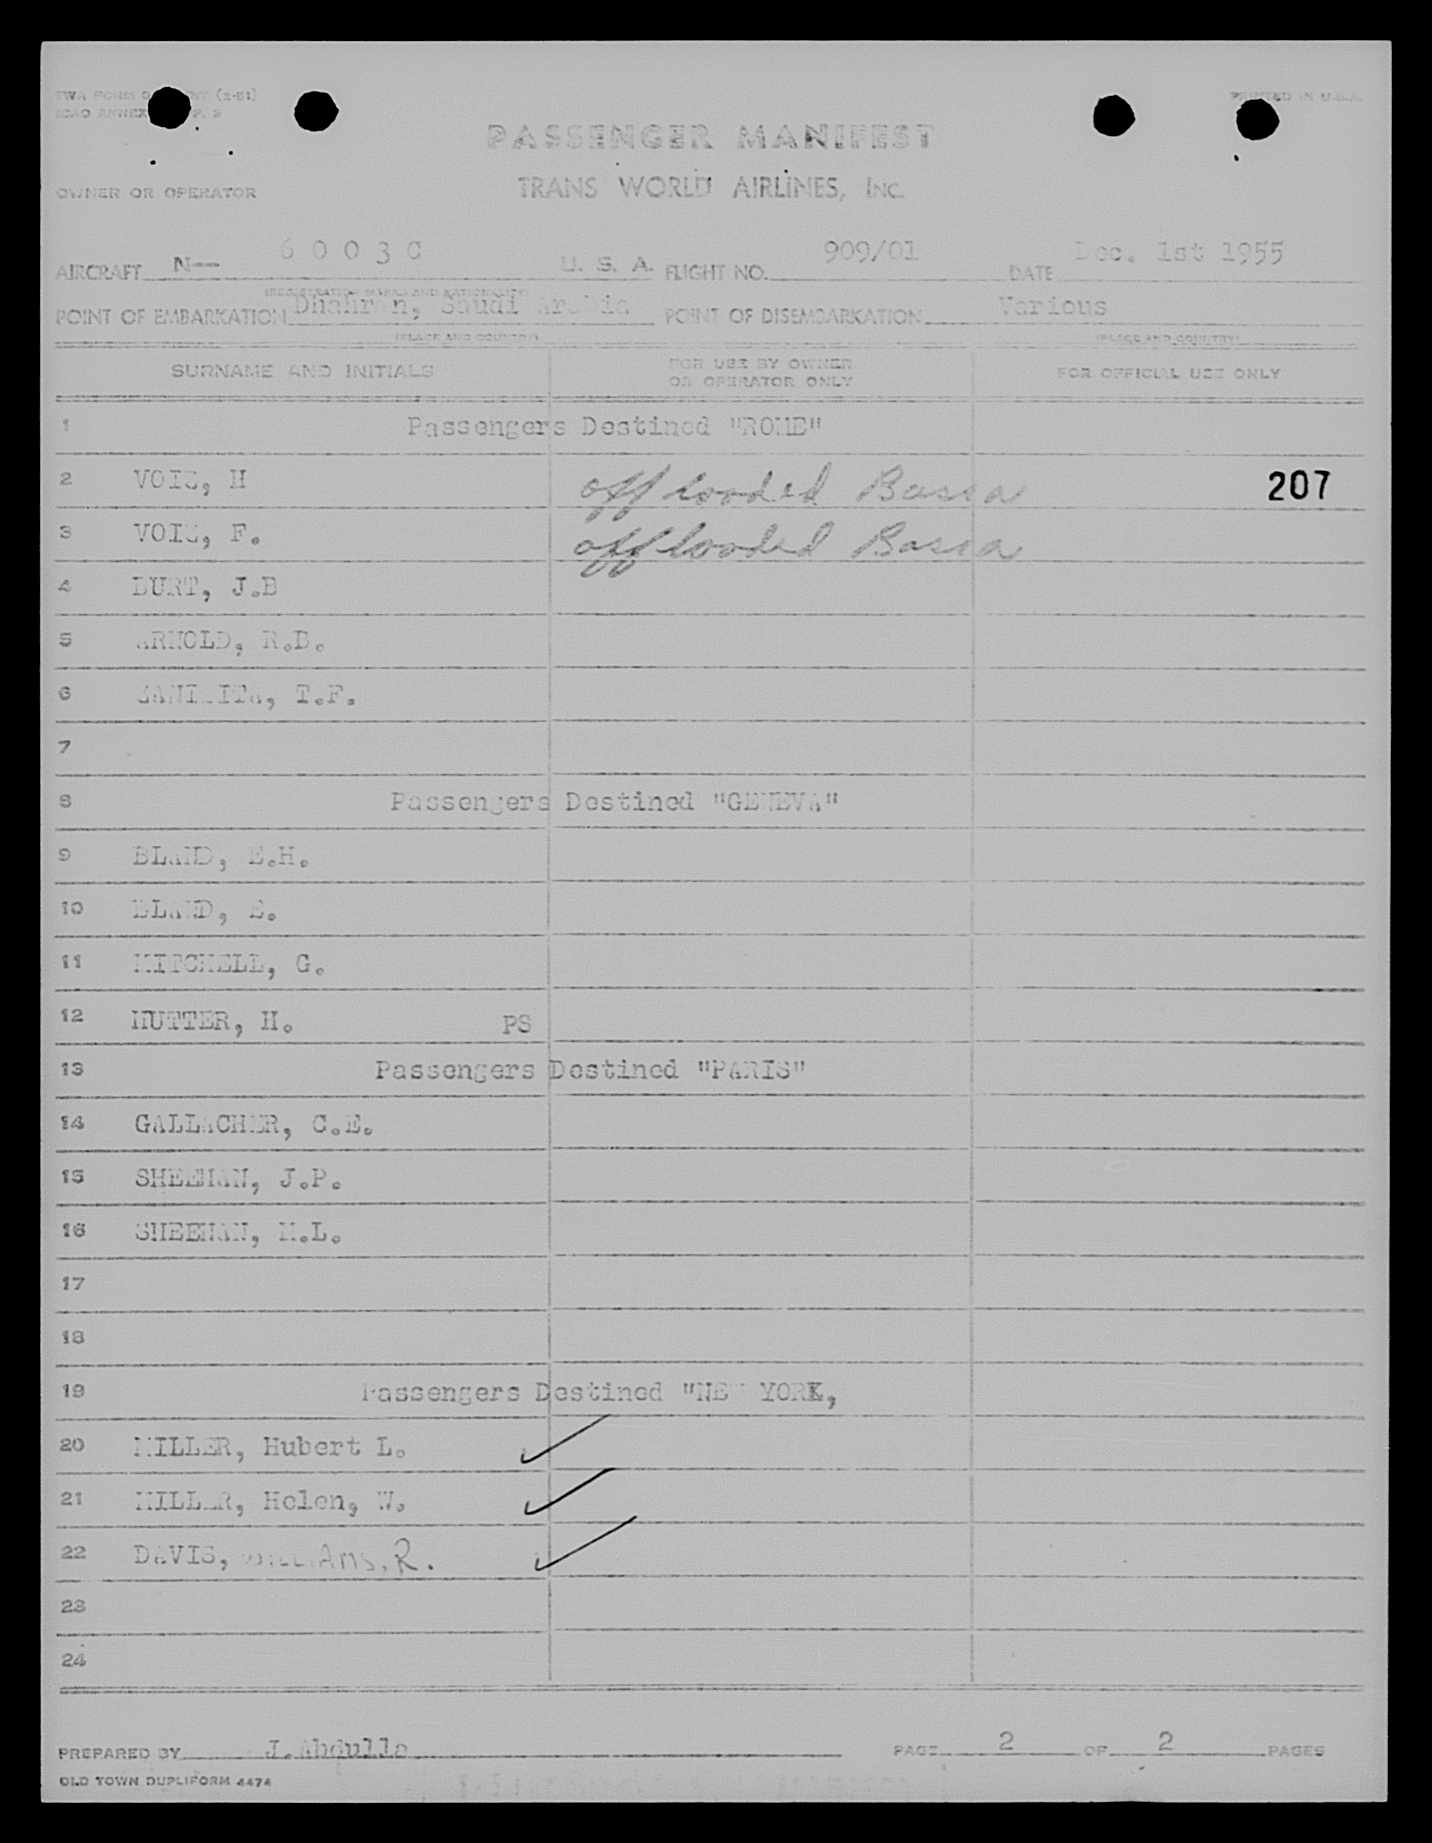 TWA FORM (2-51) PRINTED IN U.S.A.
ICAO ANNEX
PASSENGER MANIFEST
OWNER OR OPERATOR TRANS WORLD AIRLINES, INC.
AIRCRAFT N-- 6003C U. S. A. FLIGHT NO. 909/01 DATE Dec. 1st 1955
(REGISTRATION MARKS AND NATIONALITY)
POINT OF EMBARKATION Dhahran, Saudi Arabia POINT OF DISEMBARKATION Various
(PLACE AND COUNTRY) (PLACE AND COUNTRY)
SURNAME AND INITIALS FOR USE BY OWNER OR OPERATOR ONLY FOR OFFICIAL USE ONLY
1 Passengers Destined "ROME"
2 H off loaded 207
3 F. off loaded
4 BURT, J.B
5 ARNOLD, R.B.
6 T.F.
7
8 Passengers Destined "GENEVA"
9 BLAND, E.H.
10 BLAND, E.
11 MITCHELL, G.
12 HUTTER, H. PS
13 Passengers Destined "PARIS"
14 GALLACHER, C.E.
15 SHEEHAN, J.P.
16 SHEEHAN, M.L.
17
18
19 Passengers Destined "NEW YORK,
20 MILLER, Hubert L.
21 MILLER, Helen, W.
22 DAVIS, WILLIAMS, R.
23
24
PREPARED BY J.Abdulla PAGE 2 OF 2 PAGES
OLD TOWN DUPLIFORM 4474